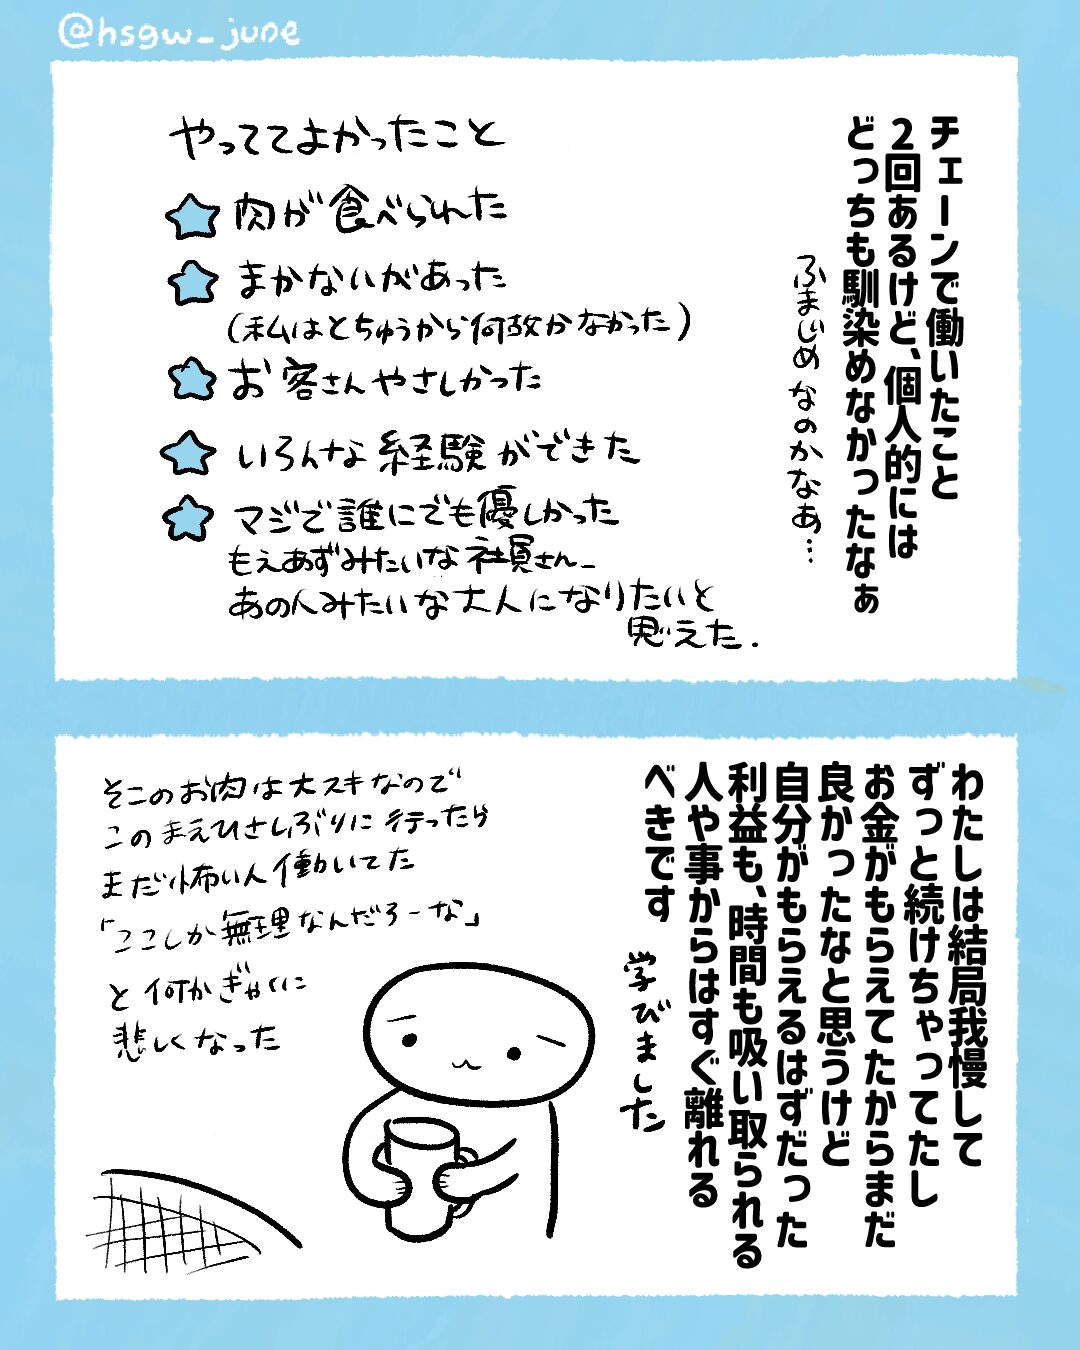 @hsgw_june
チェーンで働いたこと
２回あるけど、個人的には
どっちも馴染めなかったなぁ
ふまじめなのかなあ…
やっててよかったこと
肉が食べられた
まかないがあった
(私はとちゅうから何故かなかった)
お客さんやさしかった
いろんな経験ができた
マジで誰にでも優しかった
もえあずみたいな社員さん_
あの人みたいな大人になりたいと
思えた.
わたしは結局我慢して
ずっと続けちゃってたし
お金がもらえてたからまだ
良かったなと思うけど
自分がもらえるはずだった
利益も、時間も吸い取られる
人や事からはすぐ離れる
べきです
学びました
そこのお肉は大スキなので
このまえひさしぶりに行ったら
まだ怖い人働いてた
「ここしか無理なんだろーな」
と何かぎゃくに
悲しくなった